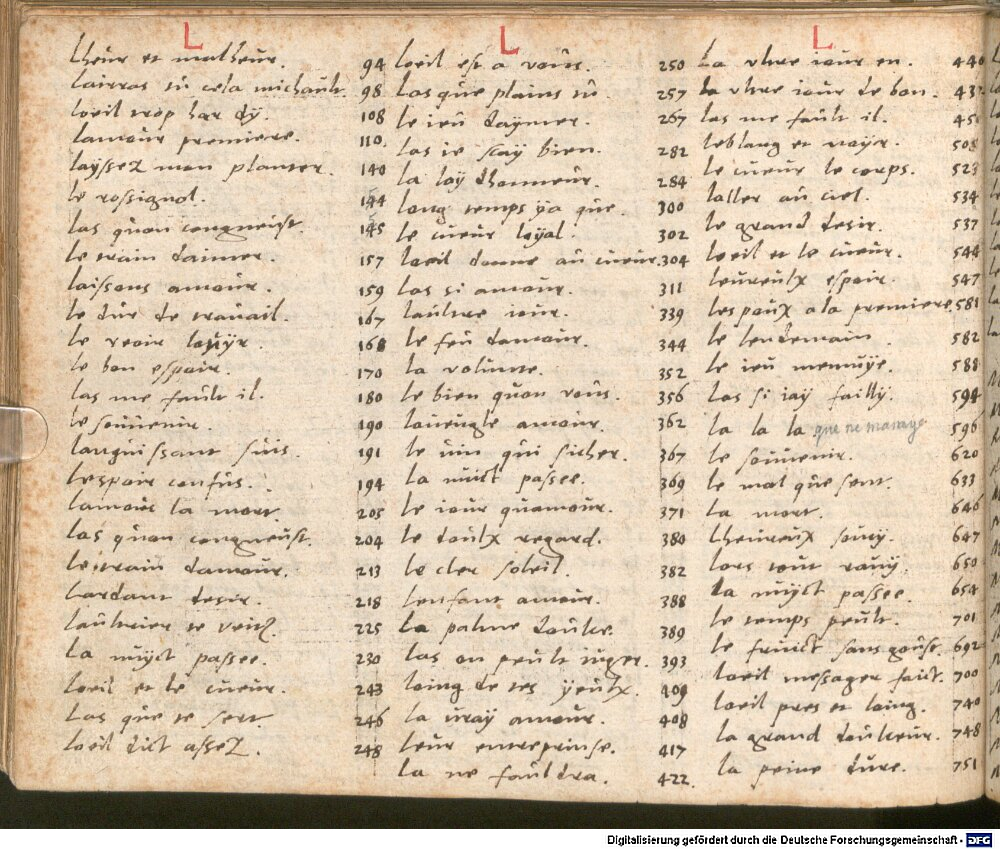 L
Lheur et malheur. 94
Lairras tu cela michault. 98
Loeil trop hardy. 108
Lamour premiere. 110
Layssez mon planter. 140
Le rossignol. 144
Las quon congneust. 145
Le train daimer. 157
Laissons amour. 159
Le dur de travail. 167
Le veoir louyr. 168
Le bon espoir. 170
Las me fault il. 180
Le souvenir. 190
Languissant suis. 191
Lespoir confus. 194
Lamour la mort. 205
Las quon congneust. 204
Le train damour. 213
Lardant desir. 218
Laultrier te veitz. 225
La nuyct passee. 230
Loeil et le cueur. 243
Las que te sert 246
Loeil dict assez. 248
L
Loeil est a vous. 250
Las que plains tu. 257
Le ieu daymer. 267
Las ie scay bien. 282
La loy dhonneur. 284
Long temps ya que. 300
Le cueur loyal. 302
Loeil donne au cueur. 304
Las si amour. 311
Laultre iour. 339
Le feu damour. 344
La volunte. 352
Le bien quon vous. 356
Laveugle amour. 362
Le vin qui sicher. 367
La nuict passee. 369
Le iour quamour. 371
Le doulx regard. 380
Le cler soleil. 382
Lenfant amour. 388
La palme doulce. 389
Las on peult iuger. 393
Loing de tes yeulx. 409
La vray amour. 408
Leur entreprinse. 417
La ne fauldra. 422.
L
La vltre iour en. 440
La vltre iour de bon. 432
Las me fault il. 450
Leblanc et noyr. 508
Le cueur le corps. 523
Laller au ciel. 534
Le grand desir. 537
Loeil et le cueur. 544
Leureulx espoir. 547
Lespoux a la premiere 581
Le lendemain. 582
Le ieu mennuye. 588
Las si iay failly. 594
La la la que ne manage 596
Le souvenir. 620
Le mal que sent. 633
La mort. 646
Lheureux soucy. 647
Lors tout rauy. 650
La nuyct passee. 654
Le temps peult. 701
Le fruict sans gouse. 692
Loeil messager faict. 700
Loeil pres et loing. 740
La grand douleeur. 748
La peine dure. 751
Digitalisierung gefördert durch die Deutsche Forschungsgemeinschaft - DFG